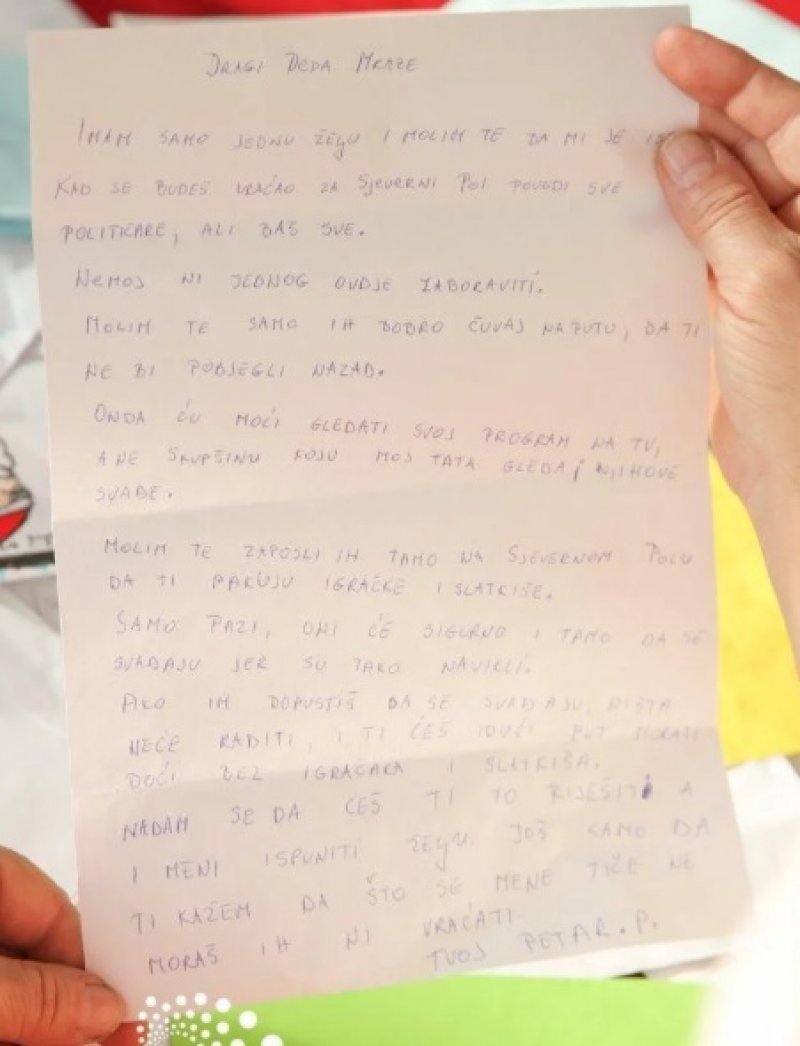 DRAGI DEDA MRAZE
IMAM SAMO JEDNU ŽEljU I MOLIM TE DA MI JE
KAD SE BUDEŠ VRAĆAO ZA SJEVERNI POl POVEDI SVE
POLITIČARE, ALI BAŠ SVE.
NEMOJ NI JEDNOG OVDJE ZABORAVITI.
MOLIM TE SAMO IH DOBRO ČUVAJ NA PUTU, DA TI
NE BI POBJEGLI NAZAD.
ONDA ĆU MOĆI GLEDATI SVOJ PROGRAM NA TV,
A NE SKUPŠTINU KOJU MOJ TATA GLEDA, I NJIHOVE
SVAĐE.
MOLIM TE ZAPOSLI IH TAMO NA SJEVERNOM POLU
DA TI PAKUJU IGRAČKE I SLATKIŠE.
SAMO PAZI, ONI ĆE SIGURNO I TAMO DA SE
SVAĐAJU JER SU TAKO NAVIKLI.
AKO IM DOPUSTIŠ DA SE SVADJAJU, NIŠTA
NEĆE RADITI, I TI ĆEŠ IDUĆI PUT MORATI
DOĆI BEZ IGRAČAKA I SLATKIŠA.
NADAM SE DA ĆEŠ TI TO RIJEŠITI A
I MENI ISPUNITI ŽELJU. JOŠ SAMO DA
TI KAŽEM DA ŠTO SE MENE TIČE NE
MORAŠ IH NI VRAĆATI
TVOJ PETAR.P.